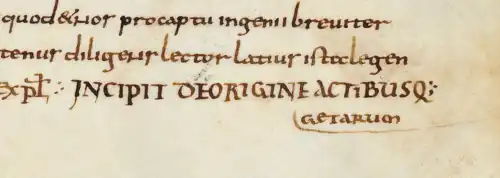 quod&nos procaptu ingenii breuiter
tenus diligens lector latius ista legen
expł ∴ INCIPIT DEORIGINE ACTIBUSQ:
GETARUM